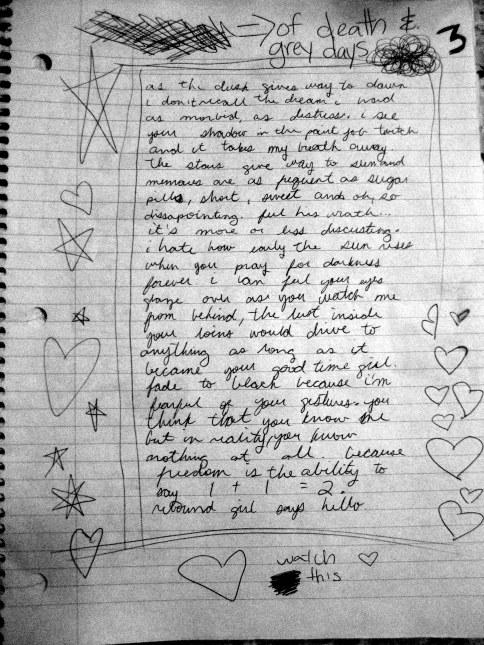 of death &
grey days
3
as the dusk gives way to dawn
i don't recall the dream i
as morbid, as distress. i see
your shadow in the paint job twitch
and it takes my breath away.
the stars give way to sun and
memories are as frequent as sugar
pills, short, sweet and oh, so
dissapointing. feel his wrath...
it's more or less discusting.
i hate how early the sun rises
when you pray for darkness
forever i can feel your eyes
glaze over as you watch me
from behind, the lust inside
your loins would drive to
anything as long as it
became your good time girl.
fade to black because i'm
fearful of your gestures. you
think that you know me
but in reality, you know
nothing at all. because
freedom is the ability to
say 1 + 1 = 2.
rebound girl says hello
watch
this